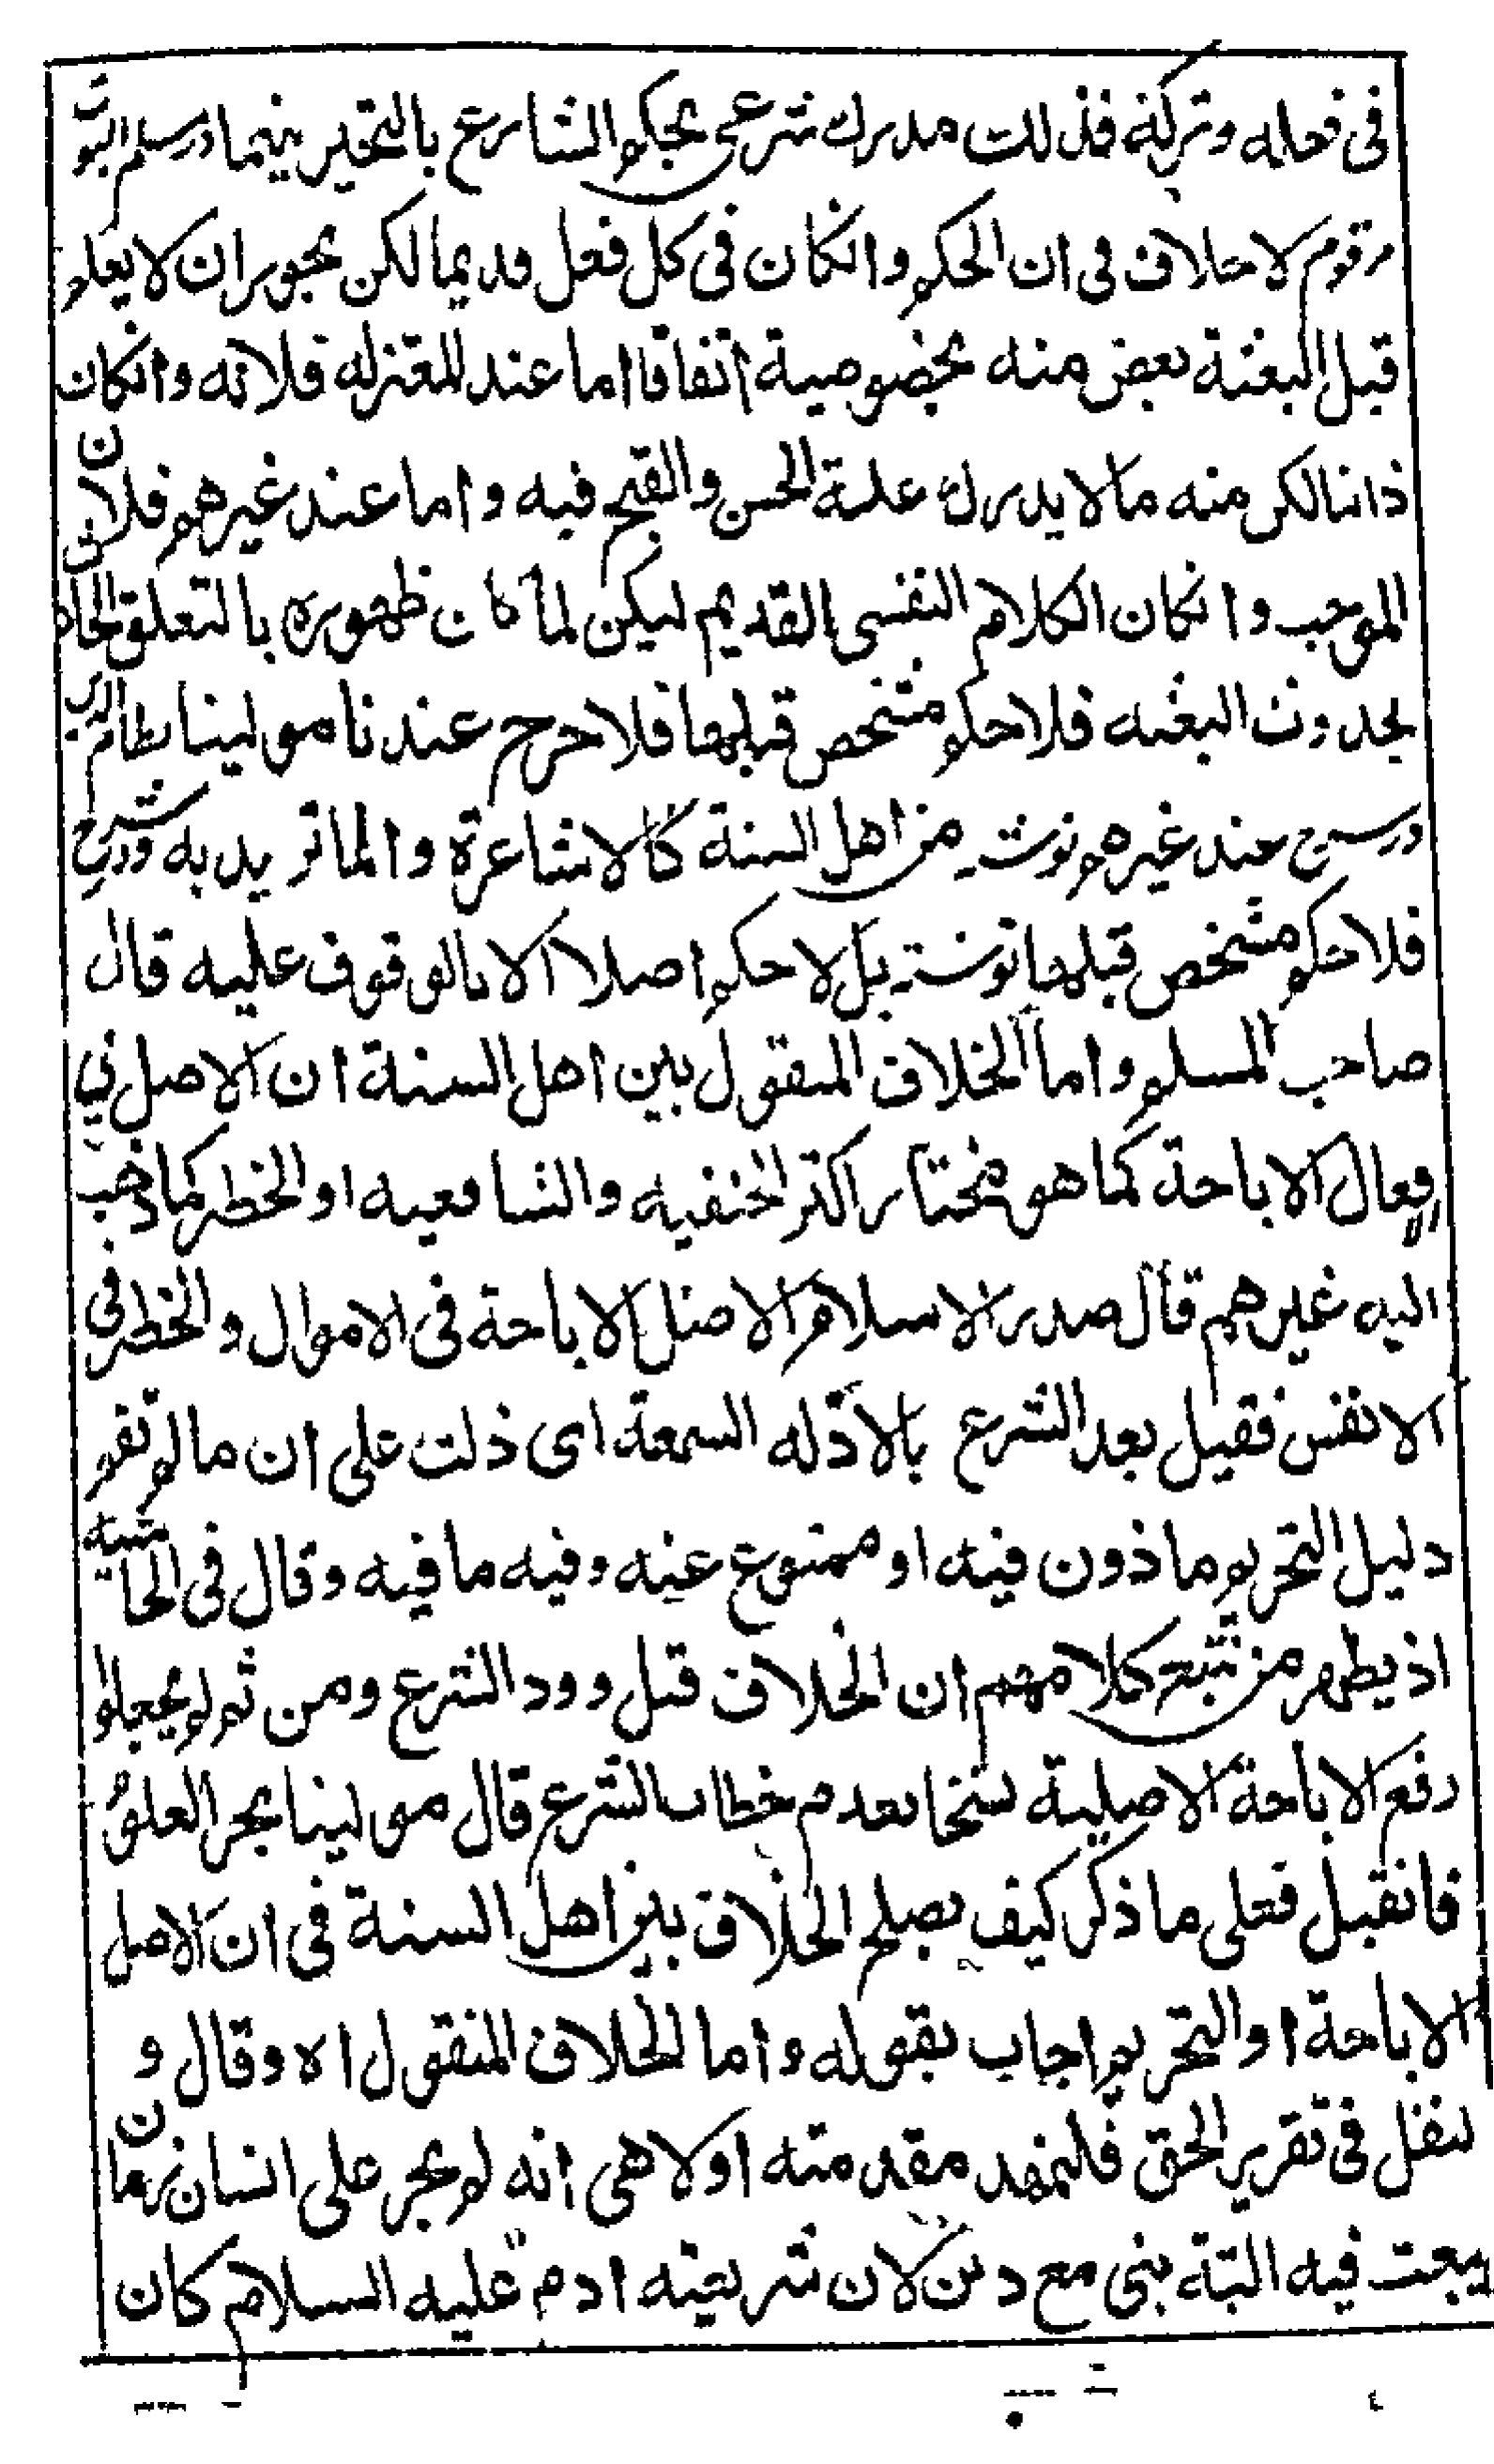 فى فعله وتركه فذلك مدرك شرعى بحكم الشارع بالتخيير بينهما در سلم الثبوت
مرقوم لا خلاف فى ان الحكم وانكان فى كل فعل قديما لكن يجوز ان لا يعلم
قبل البعثة بعض منه بخصوصية اتفاقا اما عند المعتزله فلانه وانكان
ذاتا لكن منه مالا يدرك علة الحسن والقبح فيه واما عند غيرهم فلان
الموجب وانكان الكلام النفسى القديم ليكن لما كان ظهوره بالتعلق الحادث
بحدوث البعثه فلا حكم مشخص قبلها فلا حرج عندنا مولينا نظام الدين
در شرح عند غيرهم نوشته من اهل السنة كالاشاعرة والماتريديه ودر شرح
فلا حكم مشخص قبلها نوشته بل لا حكم اصلا الا بالوقوف عليه قال
صاحب المسلم واما الخلاف المنقول بين اهل السنة ان الاصل فى
افعال الاباحة كما هو مختار اكثر الحنفيه والشافعيه او الخطر كما ذهب
اليه غيرهم قال صدر الاسلام الاصل الاباحة فى الاموال والخطر فى
الانفس فقيل بعد الشرع بالادله السمعة اى ذلت على ان مالم تقم
دليل التحريم ماذون فيه او ممنوع عنه وفيه ما فيه وقال فى الحاشيه
اذ يظهر من تتبع كلامهم ان الخلاف قبل ورود الشرع ومن ثم لم يجعلوا
رفع الاباحة الاصلية نسخا بعدم خطاب الشرع قال مولينا بحر العلوم
فانقيل فعلى ما ذكر كيف يصلح الخلاف بين اهل السنة فى ان الاصل
الاباحة او التحريم اجاب بقوله واما الخلاف المنقول اه وقال و
لنقل فى تقرير الحق فلنمهد مقدمته اولا هى انه لم يجر على انسان زمان ما
يبعث فيه البتة بنى مع دين لان شريعته ادم عليه السلام كان